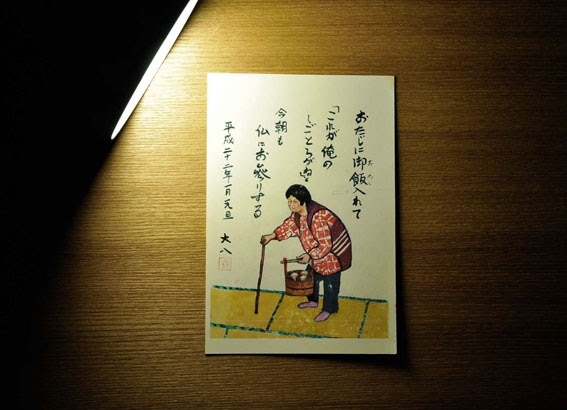 おたしに御飯入れて
「これが俺の
しごとらがね」と
今朝も
仏にお参りする
平成二十二年一月元旦
大八